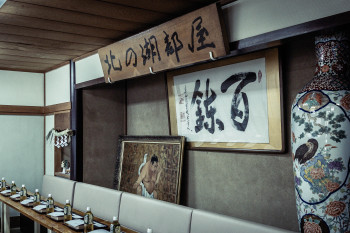 北の湖部屋
百錬